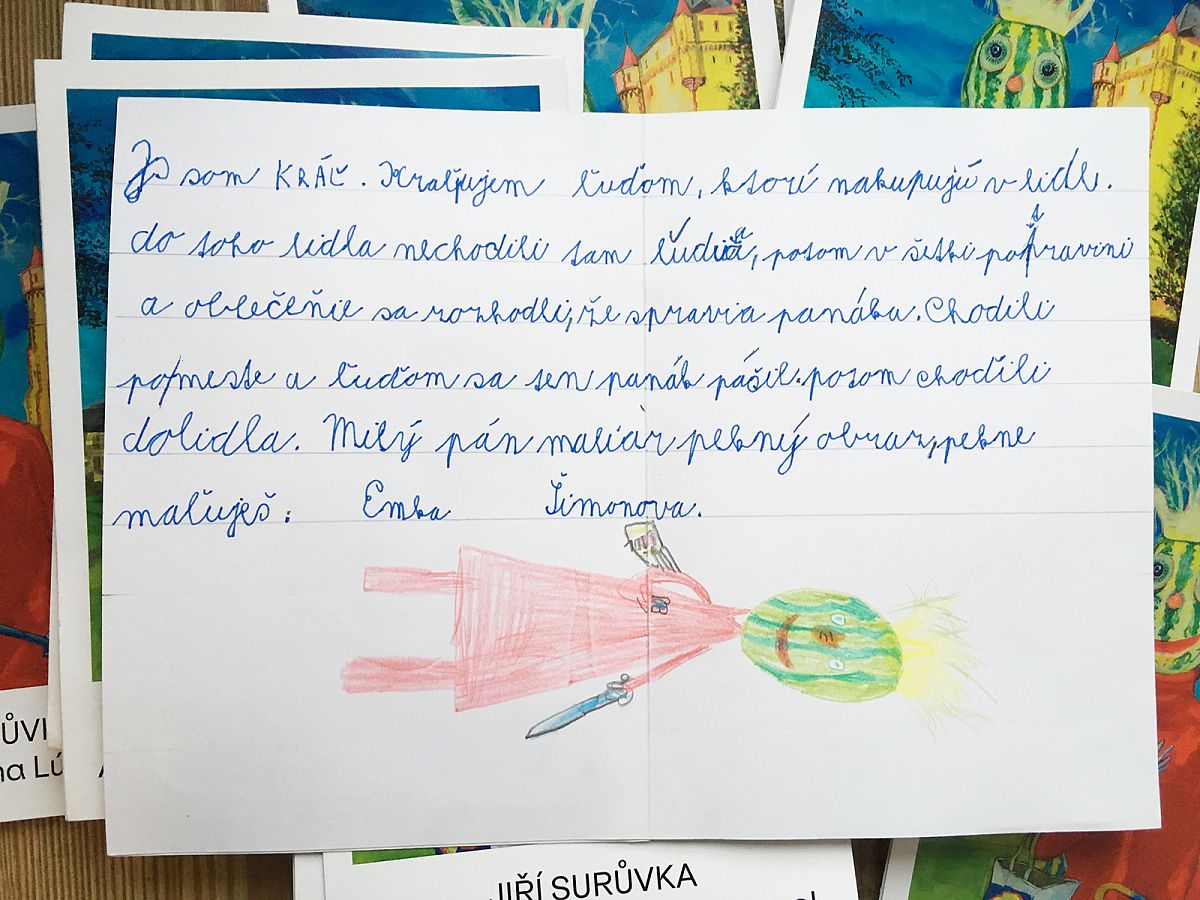 Ja som KRÁĽ. Kraľujem ľuďom, ktorí nakupujú v lidl.
do toho lidla nechodili tam ľudia, potom v šetki potravini
a oblečeňie sa rozhodli, že spravia panáka. Chodili
po meste a ľuďom sa ten panák páčil. potom chodili
dolidla. Milý pán maliar pekný obraz, pekne
maľuješ. Emka Šimonova.
ŮVI
na Lú
JIŘÍ SURŮVKA